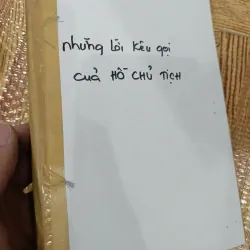 những lời kêu gọi
của HỒ CHỦ TỊCH